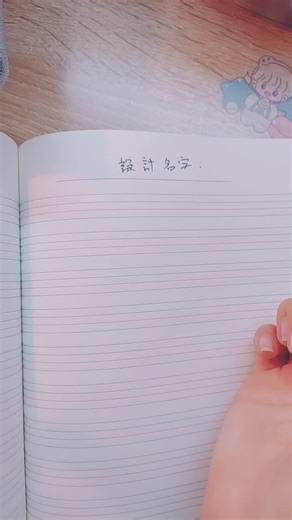 設計名字: